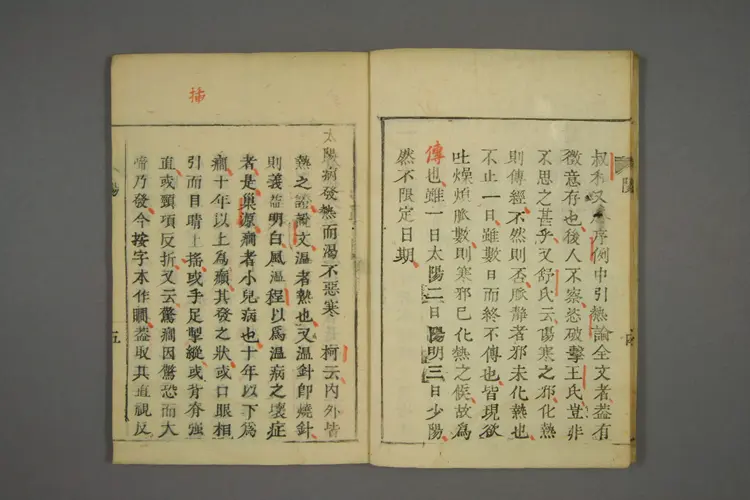 叔和又序例中引熱論全文者蓋有
微意存也後人不察恣破擊王氏豈非
不思之甚乎又舒氏云傷寒之邪化熱
則傳經不然則否脈靜者邪未化熱也
不止一日雖數日而終不傳也皆現欲
吐燥煩脈數則寒邪已化熱之候故為
傳也雖一日太陽二日陽明三日少陽
然不限定日期
太陽病發熱而渴不惡寒 柯云內外皆
熱之說文溫者熱也又溫針即燒針
則義益明白風溫程以為溫病之壞症
者是巢源癇者小兒病也十年以下為
癇十年以上為癲其發之狀或口眼相
引而目睛上搖或手足掣縱或背脊強
直或頸項反折又云驚癇因驚恐而大
啼乃發今按字本作瞷蓋取其直視反
陽
五
拵